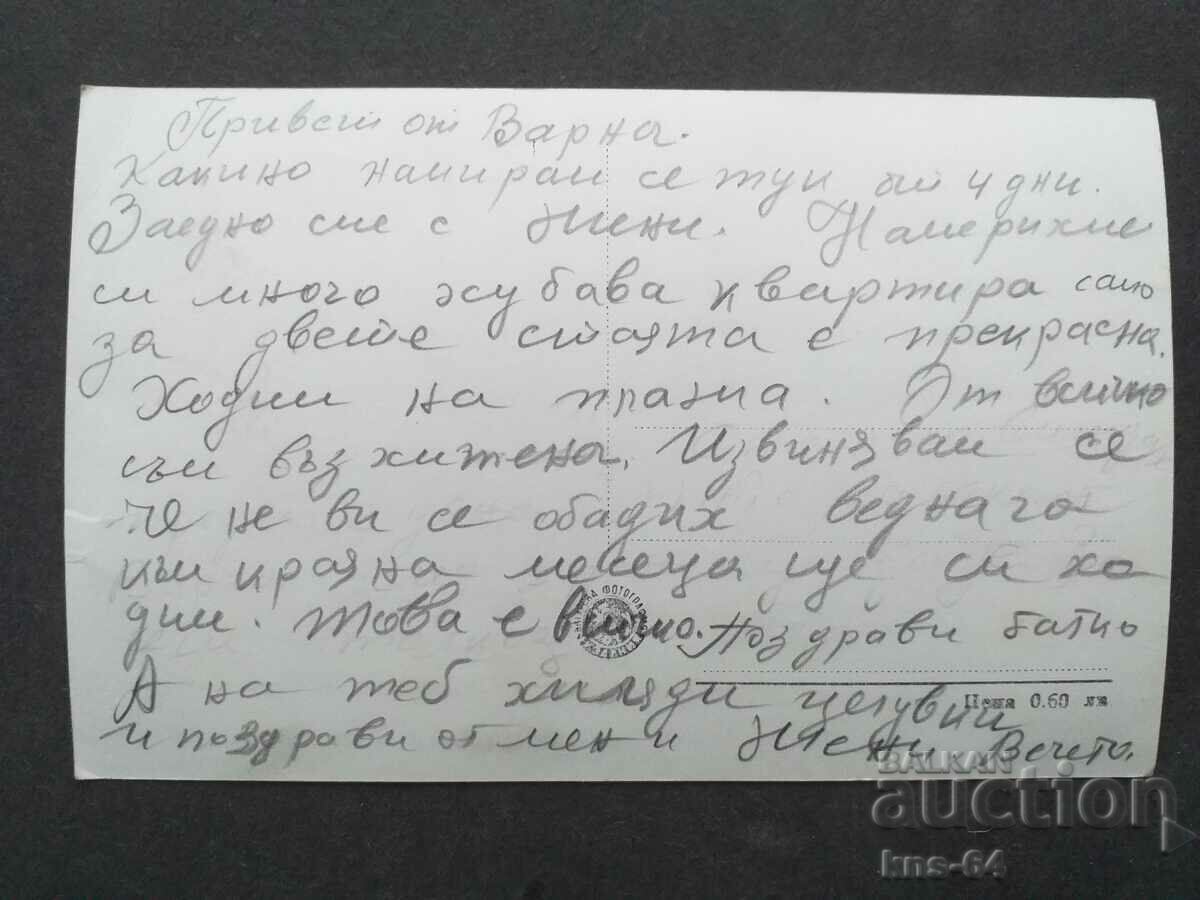 Привет от Варна.
Какино намирам се тук от 4 дни.
Заедно сме с Жени. Намерихме
си много хубава квартира само
за двете стаята е прекрасна.
Ходим на плажа. От всичко
съм възхитена. Извинявай се
че не ви се обадих веднага
към края на месеца ще си хо
дим. Това е всичко. Поздрави батьо
А на теб хиляди целувки
и поздрави от мен и Жени Вечето.
Цена 0.60 лв
BALKAN
auction
kns-64